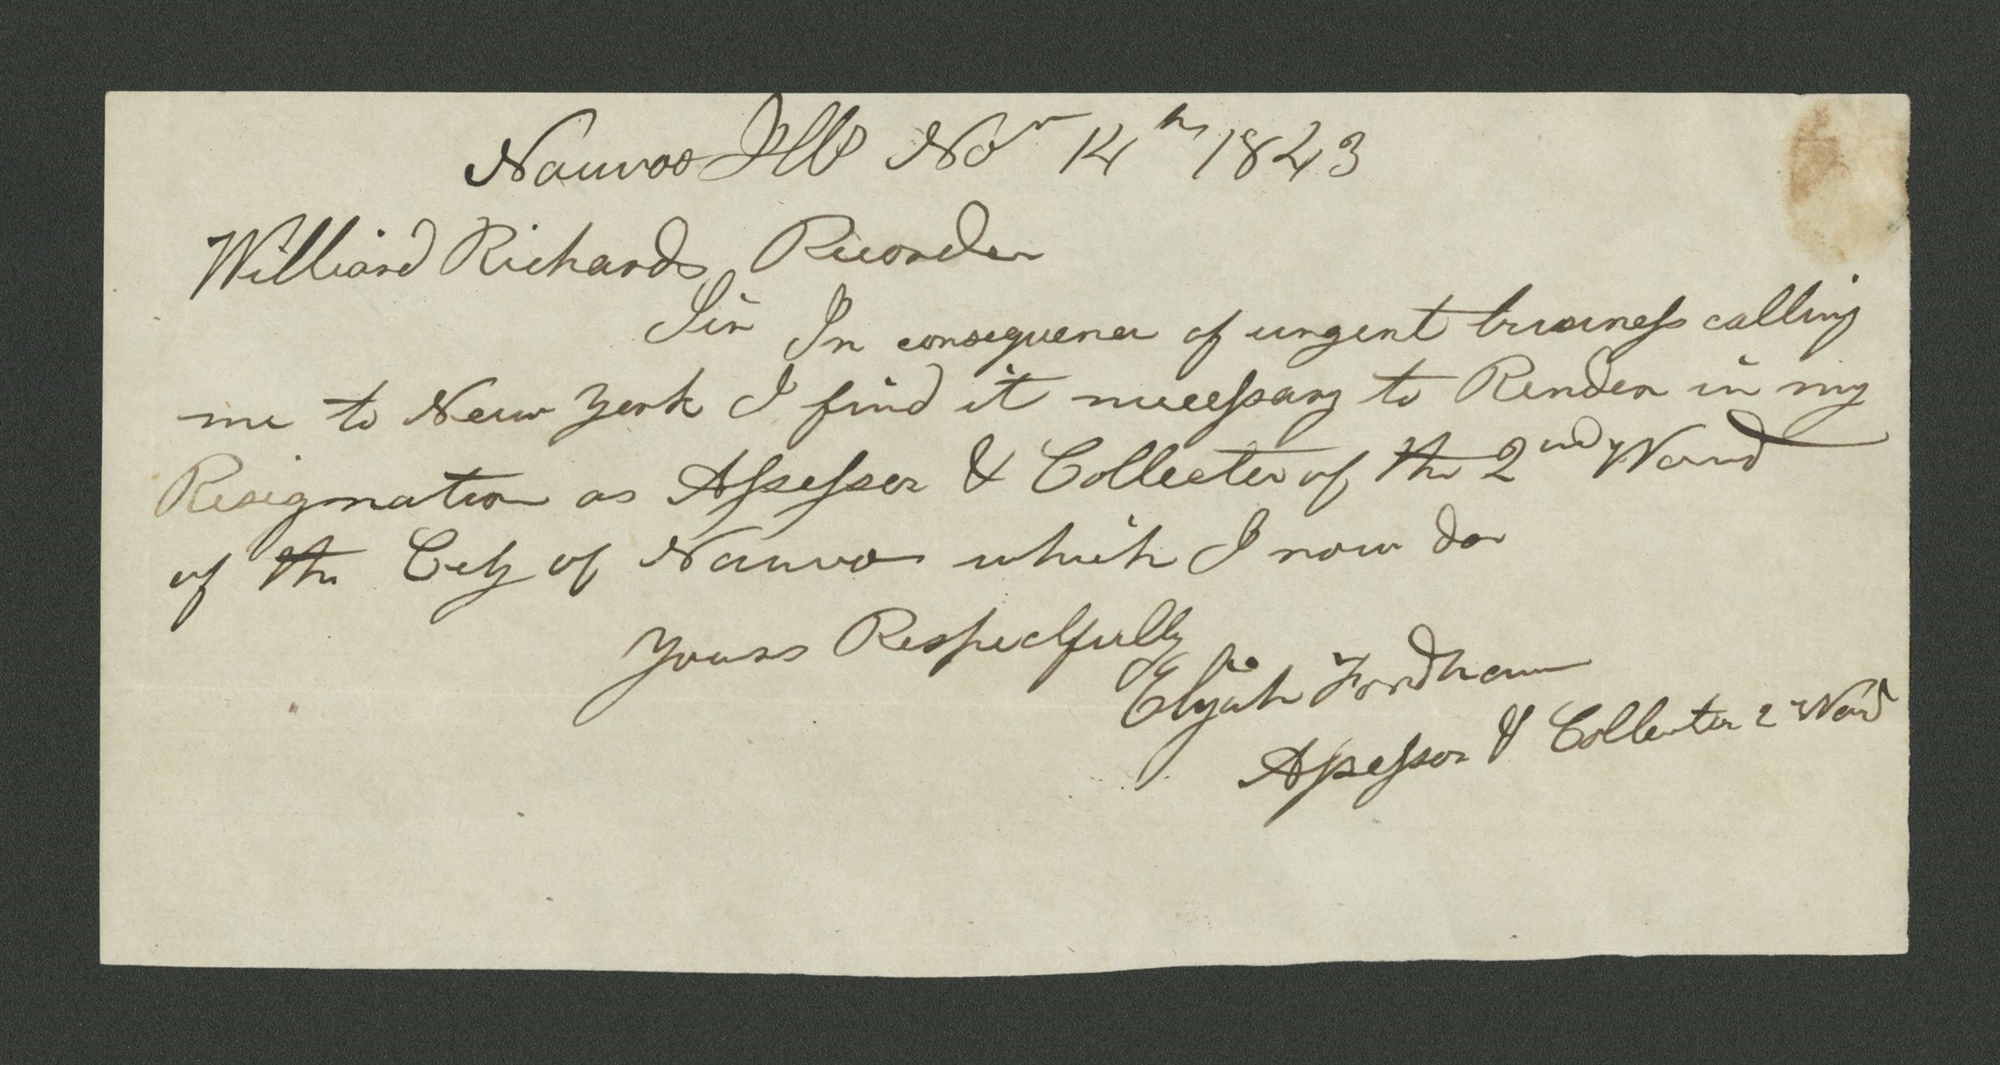 Nauvoo Ills Nov 14th 1843
Williard Richards Recorder
Sir In consequence of urgent business calling
me to New York I find it necessary to Render in my
Resignation as Assessor & Collector of the 2nd Ward
of the City of Nauvoo which I now do
Yours Respectfully
Elijah Fordham
Assessor & Collector 2 Ward